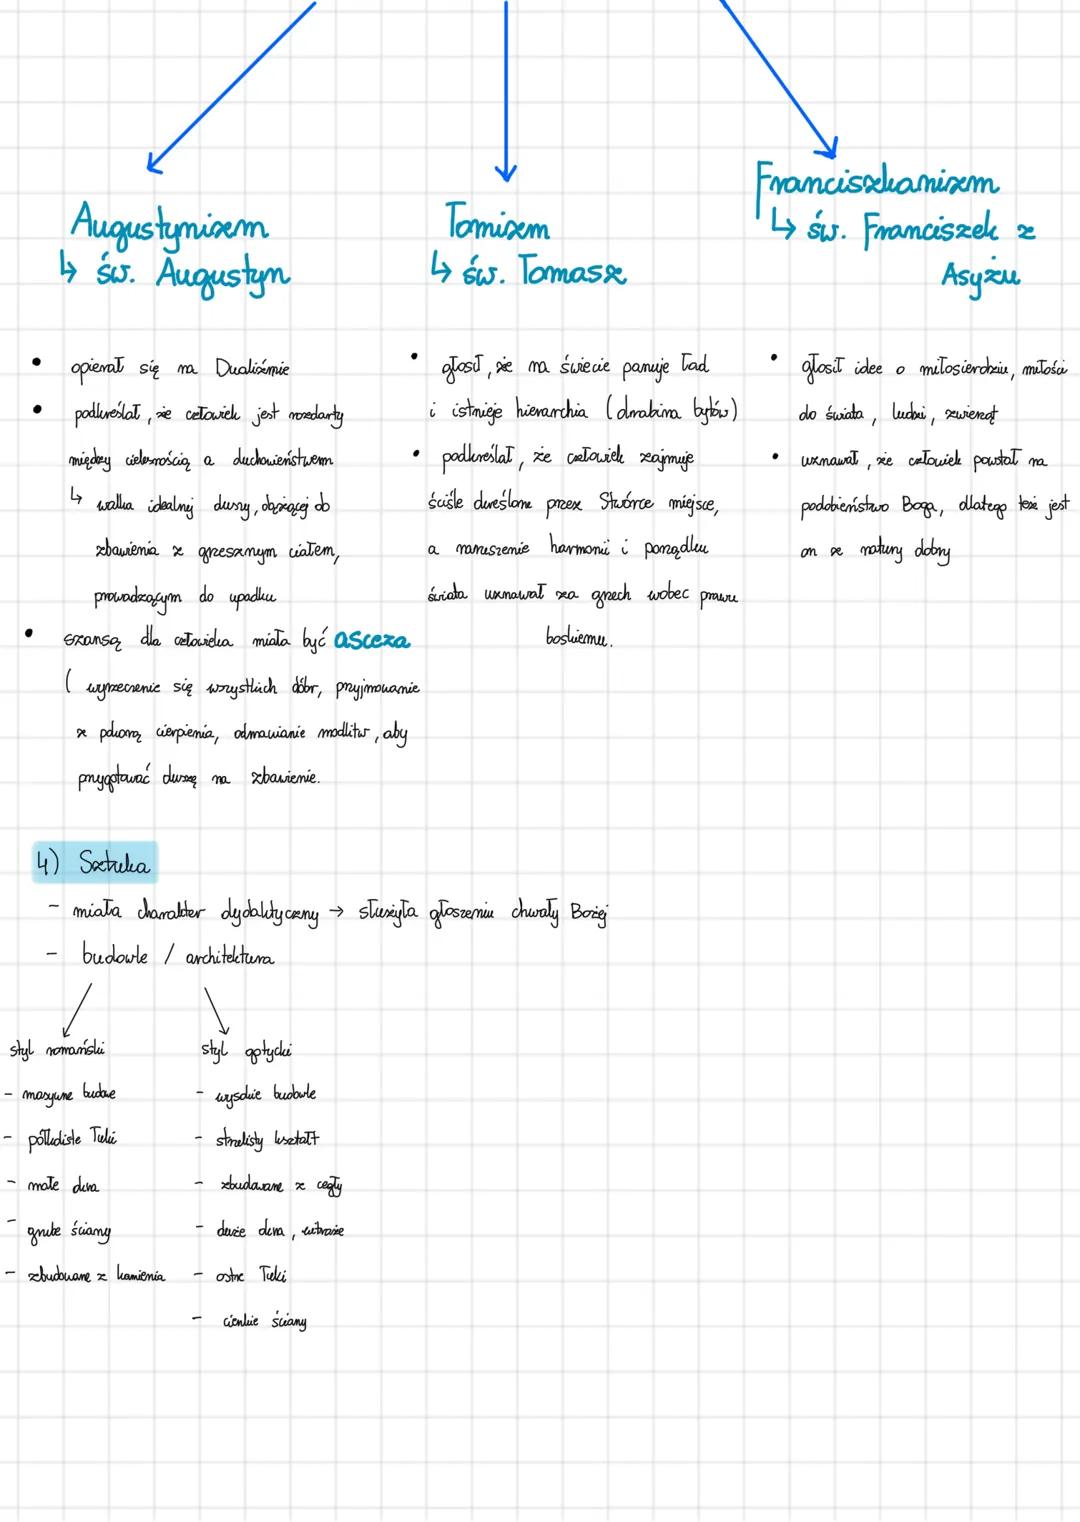 Augustynizm
↳ św. Augustyn
• opierał się na Dualiźmie
• podkreślał, że człowiek jest rozdarty
między cielesnością a duchowieństwem
↳ walka idealnej duszy, dążącej do
zbawienia z grzesznym ciałem,
prowadzącym do upadku
• szansą dla człowieka miała być asceza
( wyrzeczenie się wszystkich dóbr, przyjmowanie
z pokorą cierpienia, odmawianie modlitw, aby
przygotować duszę na zbawienie.
Tomizm
↳ św. Tomasz
• głosił, że na świecie panuje ład
i istnieje hierarchia (drabina bytów)
• podkreślał, że człowiek zajmuje
ściśle określone przez Stwórce miejsce,
a naruszenie harmonii i porządku
świata uznawał za grzech wobec prawu
boskiemu.
Franciszkanizm
↳ św. Franciszek z
Asyżu
• głosił idee o miłosierdziu, miłości
do świata, ludzi, zwierząt
• uznawał, że człowiek powstał na
podobieństwo Boga, dlatego też jest
on ze natury dobry
4) Sztuka
- miała charakter dydaktyczny → służyła głoszeniu chwały Bożej
- budowle / architektura
styl romański
- masywne budowe
- półkoliste łuki
- małe okna
- grube ściany
- zbudowane z kamienia
styl gotycki
- wysokie budowle
- strzelisty kształt
- zbudowane z cegły
- duże okna, witraże
- ostre łuki
- cienkie ściany